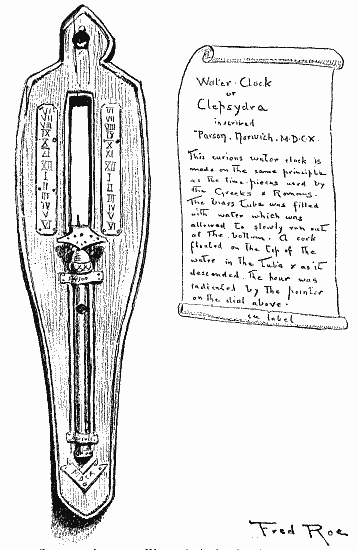 Water-Clock
or
Clepsydra
inscribed
"Parson. Norwich. M.D.C.X.
This curious water clock is
made on the same principle
as the time-pieces used by
the Greeks & Romans.
The brass Tube was filled
with water which was
allowed to slowly run out
at the bottom. A cork
floated on the top of the
water in the tube & as it
descended the hour was
indicated by the pointer
on the dial above.
label
Fred Roe